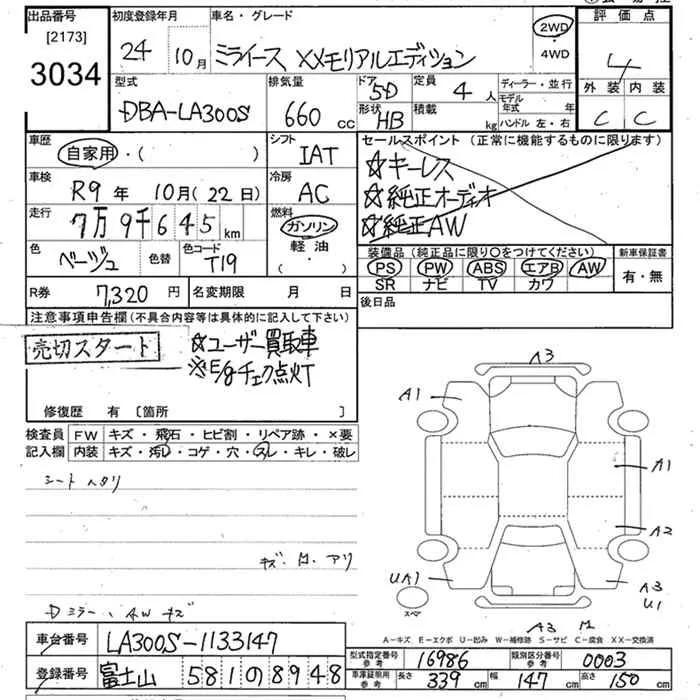 出品番号 初度登録年月 車名・グレード 評価点
[2173]
3034
24 10月 ミライース XXモリアルエディション 2WD・4WD 4
型式 排気量 ドア 定員 ディーラー・並行 外装 内装
DBA-LA300S 660 cc 5D 4人 モデル年式 年 C C
形状 積載 ハンドル 左・右
HB kg
車歴 シフト セールスポイント(正常に機能するものに限ります)
自家用・( ) IAT ☆キーレス
車検 冷房 ☆純正オーディオ
R9年 10月(22日) AC ☆純正AW
走行 燃料
7万9千645km ガソリン 軽油・( )
色 色替 色コード 装備品(純正品に限り○をつけてください) 新車保証書
ベージュ T19 PS PW ABS エアB AW 有・無
SR ナビ TV カワ
R券 7,320円 名変期限 月 日 後日品
注意事項申告欄(不具合内容等は具体的に記入して下さい)
売切スタート ☆ユーザー買取車
※E/gチェック点灯
修復歴 有 [箇所 ]
検査員 FW キズ・飛石・ヒビ割・リペア跡・×要
記入欄 内装 キズ・汚レ・コゲ・穴・スレ・キレ・破レ
シート ヘタリ
キズ・凹 アリ
Dミラー、AW キズ
A3
A1
A1
A2
UA1
A3
U1
スペア
A3
A-キズ E-エクボ U-凹み W-補修跡 S-サビ C-腐食 XX-交換済
車台番号 LA300S-1133147
型式指定番号 参考 16986 類別区分番号 参考 0003
登録番号 富士山 581の8948
車庫証明用 参考 長さ 339cm 幅 147cm 高さ 150cm